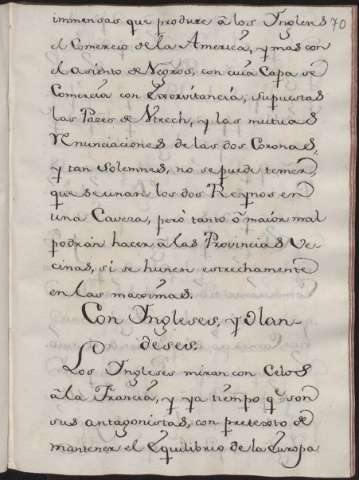 immensas que produce â los Ingleses 70
el Comercio de la America, y mas con
el asiento de Negros, con cuia Capa se
Comercia con Exorvitancia, supuestas
las Pazes de Utrech, y las mutuas
Renunciaciones de las dos Coronas,
y tan Solemnes, no se puede temer,
que se unan los dos Reynos en
una Caveza, però tanto ô maior mal
podràn hacer â las Provincias Ve-
cinas, si se hunen estrechamente
en las maximas.
Con Ingleses, y Olan-
deses.
Los Ingleses miran con Celos
â la Francia, y ya tiempo qe. son
sus antagonistas, con pretexto de
mantener el Equilibrio de la Europa